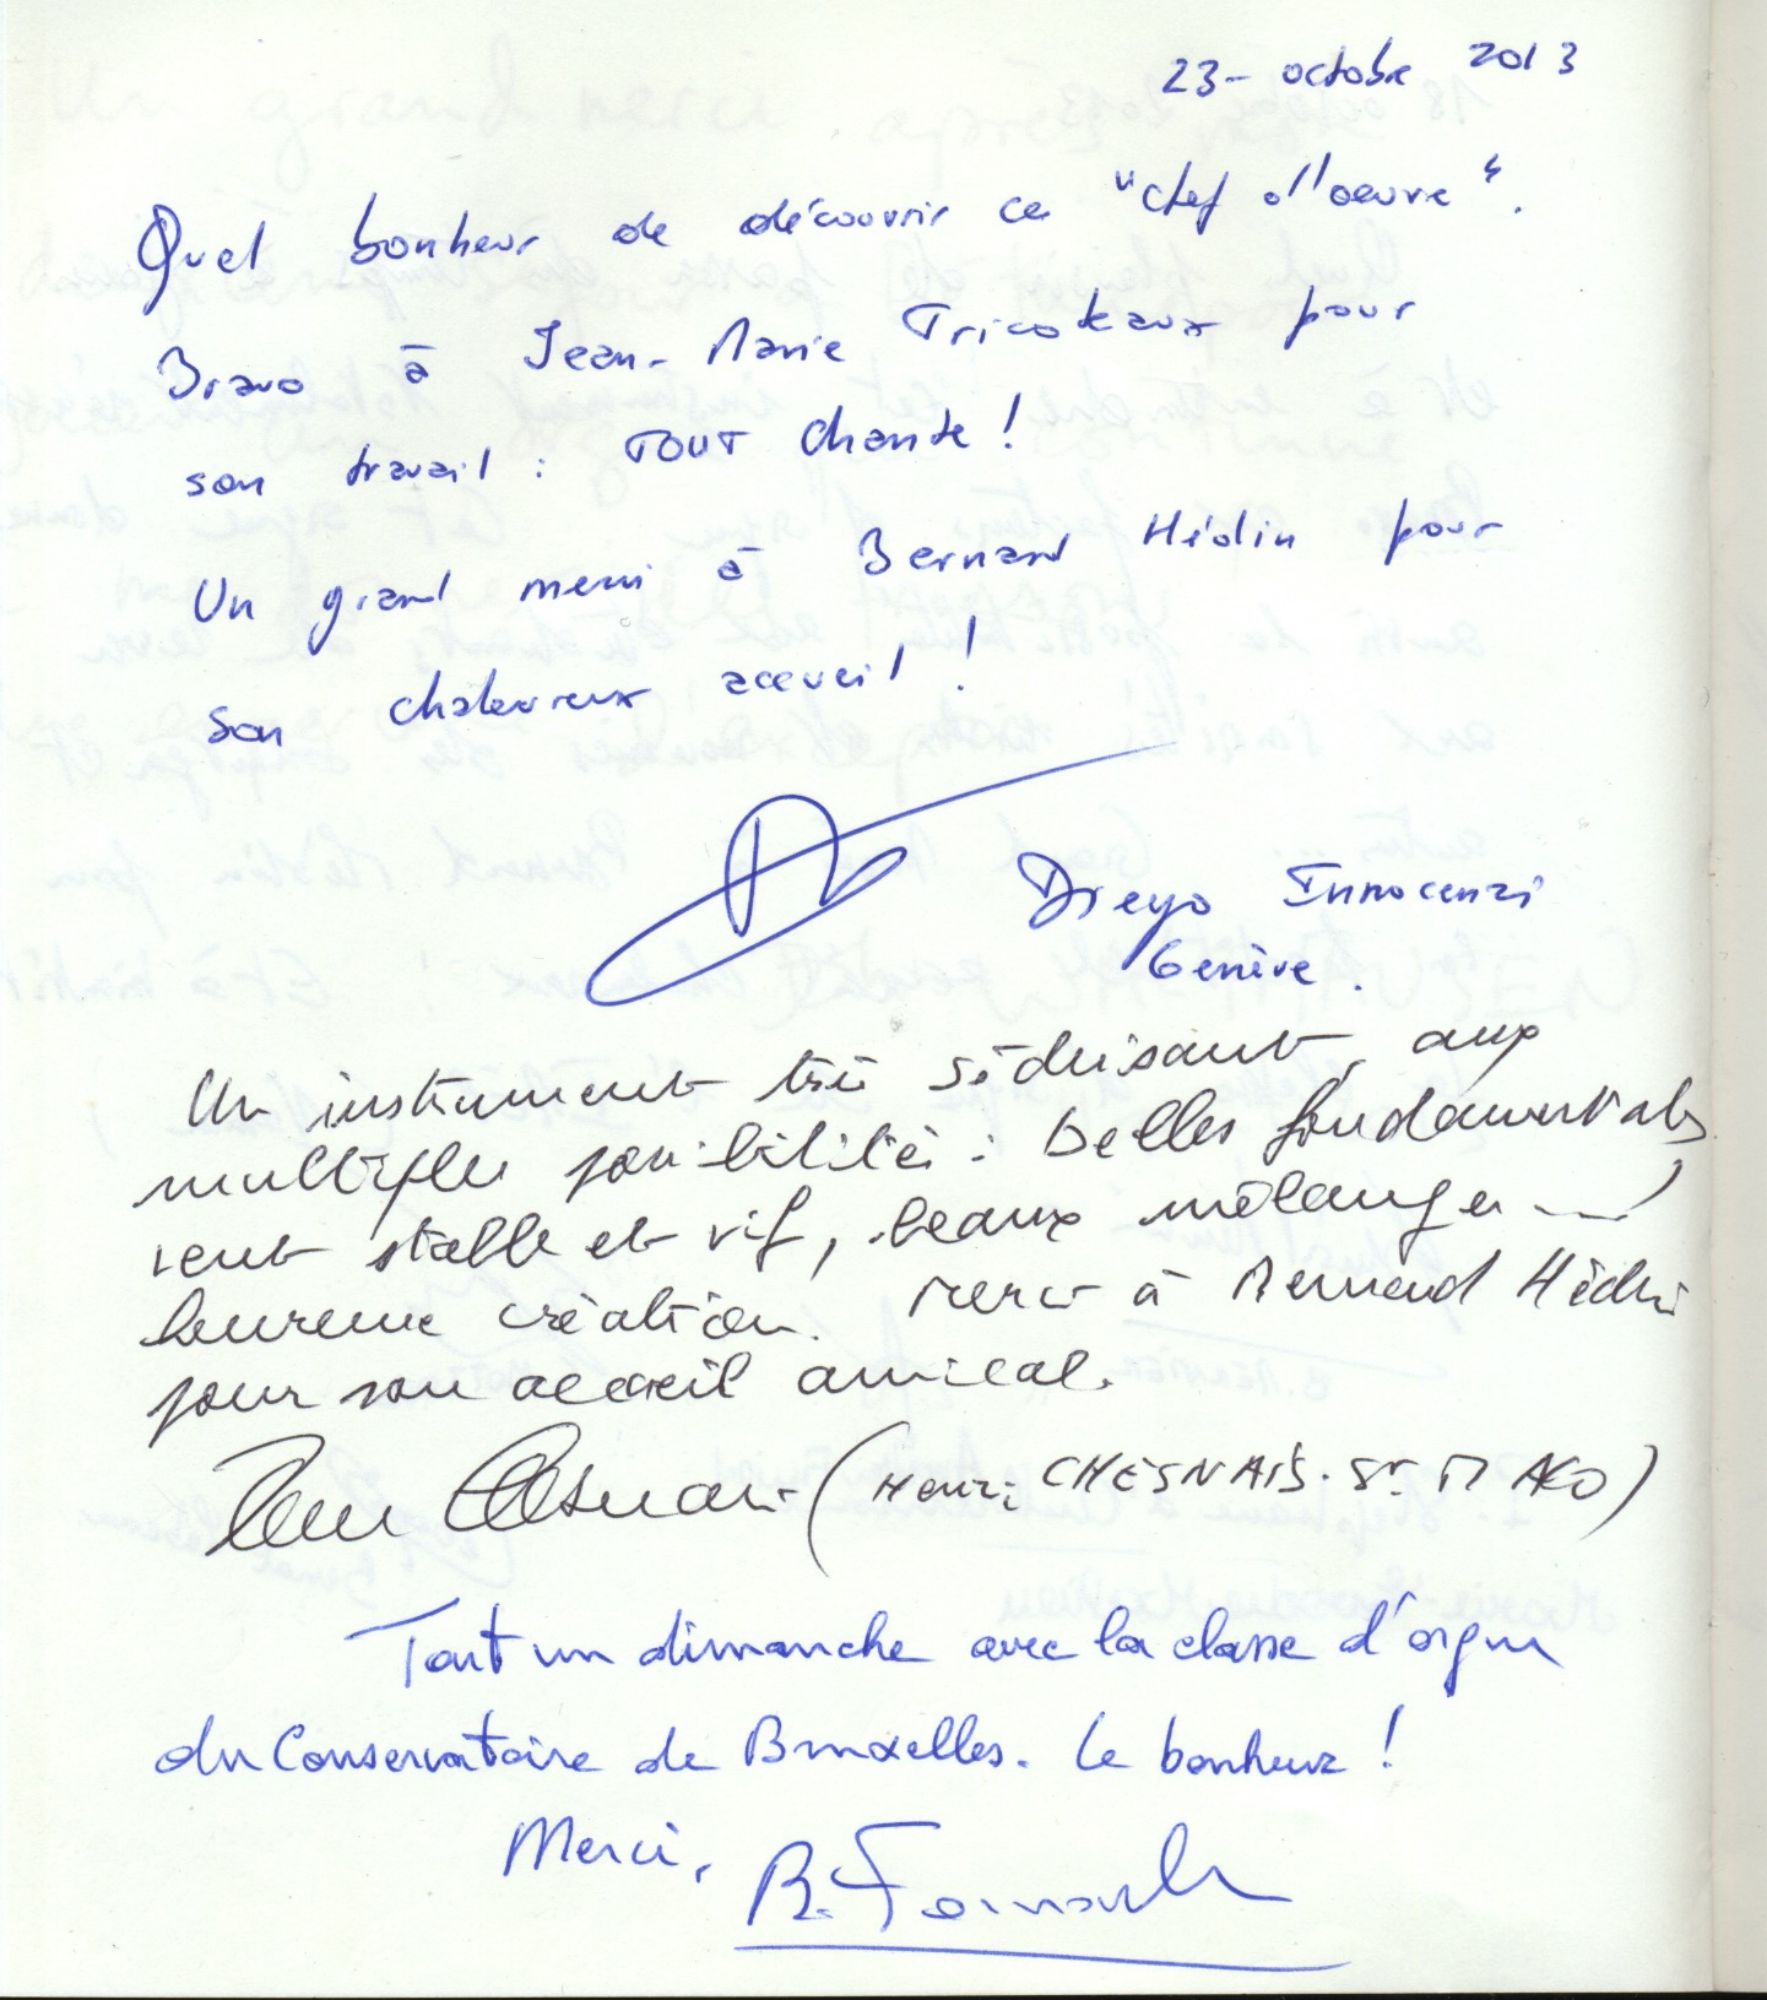 23 - octobre 2013
Quel bonheur de découvrir ce "chef d'oeuvre".
Bravo à Jean-Marie Tricoteaux pour
son travail : TOUT chante !
Un grand merci à Bernard Hédin pour
son chaleureux accueil !
Diego Innocenzi
Genève.
Un instrument très séduisant, aux
multiples possibilités : belles fondamentales
vent stable et vif, beaux mélanges ---
heureuse création. Merci à Bernard Hédin
pour son accueil amical.
(Henri CHESNAIS. St MALO)
Tout un dimanche avec la classe d'orgue
du Conservatoire de Bruxelles. Le bonheur !
Merci,